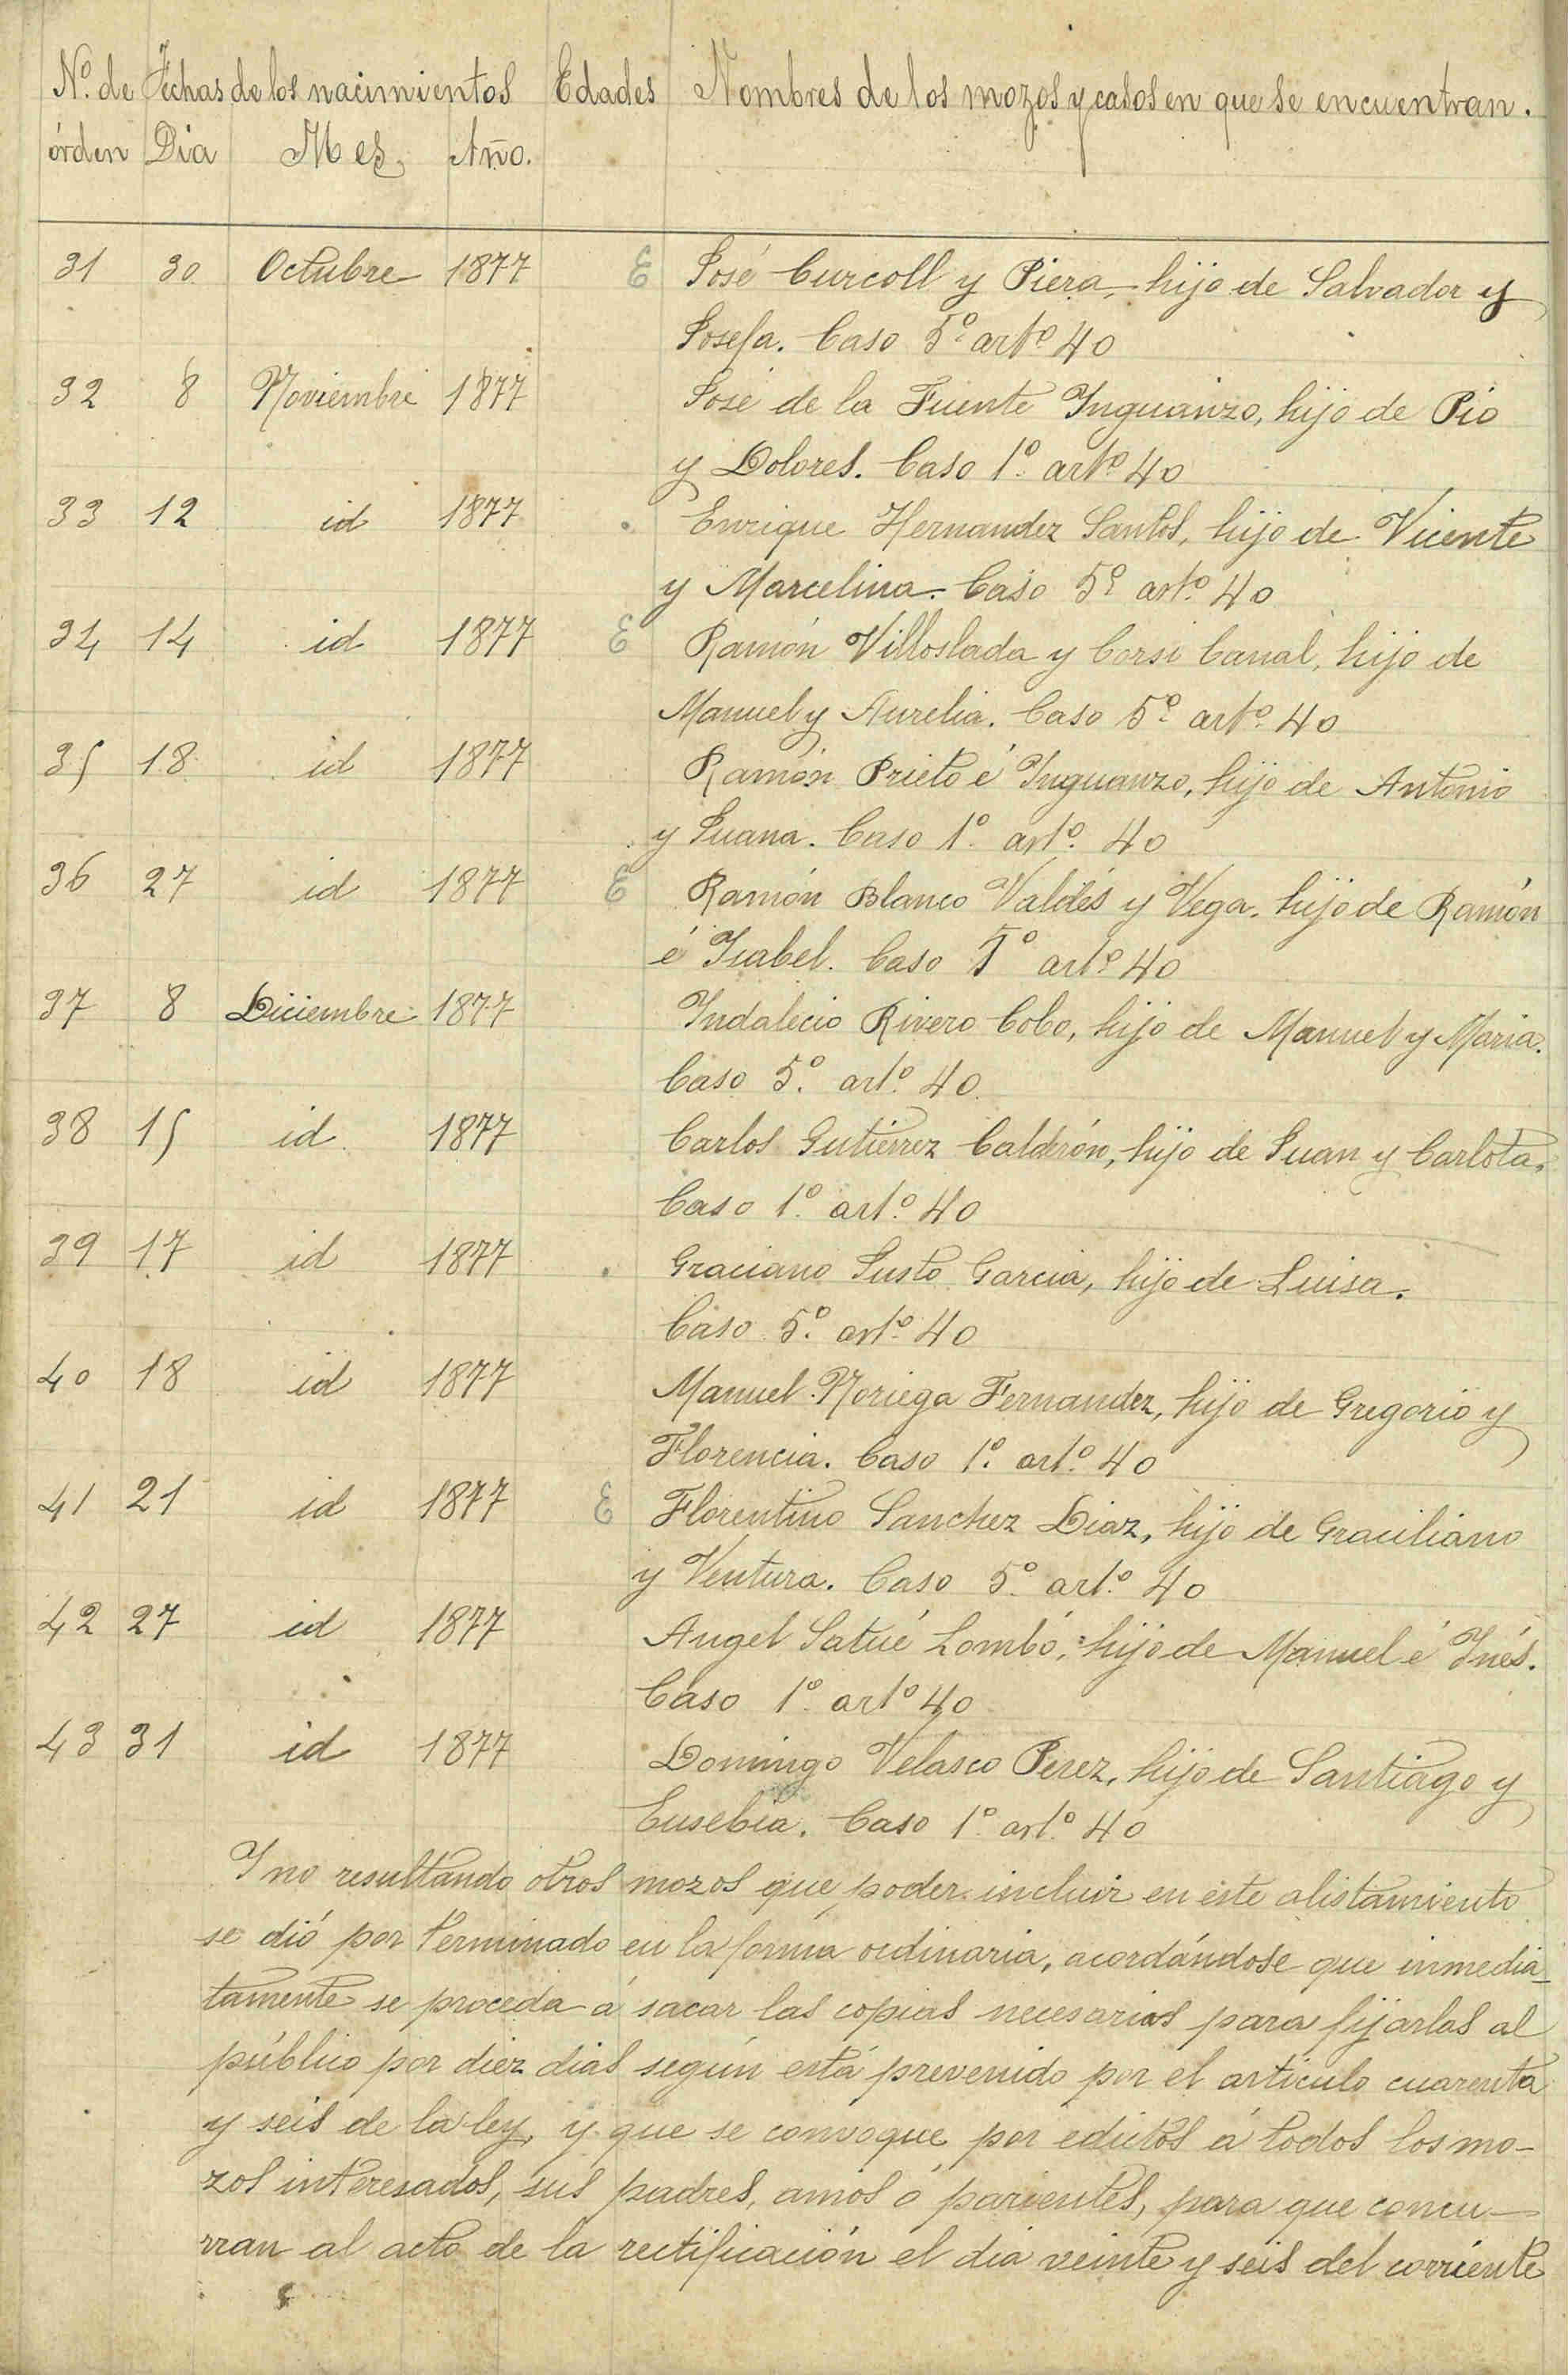 Nº. de Fechas de los nacimientos Edades Nombres de los mozos y casos en que se encuentran.
órden Dia Mes Año.
31 30 Octubre 1877 E José Curcoll y Piera, hijo de Salvador y
Josefa. Caso 5º artº 40
32 8 Noviembre 1877 José de la Fuente Inguanzo, hijo de Pio
y Dolores. Caso 1º artº 40
33 12 id 1877 Enrique Hernandez Santos, hijo de Vicente
y Marcelina. Caso 5º artº 40
34 14 id 1877 E Ramón Villoslada y Corsi Canal, hijo de
Manuel y Aurelia. Caso 5º artº 40
35 18 id 1877 Ramón Prieto é Inguanzo, hijo de Antonio
y Juana. Caso 1º artº 40
36 27 id 1877 E Ramón Blanco Valdés y Vega, hijo de Ramón
é Isabel. Caso 5º artº 40
37 8 Diciembre 1877 Indalecio Rivero Cobo, hijo de Manuel y Maria.
Caso 5º artº 40
38 15 id 1877 Carlos Gutiérrez Calderón, hijo de Juan y Carlota.
Caso 1º artº 40
39 17 id 1877 Graciano Justo Garcia, hijo de Luisa.
Caso 5º artº 40
40 18 id 1877 Manuel Noriega Fernandez, hijo de Gregorio y
Florencia. Caso 1º artº 40
41 21 id 1877 E Florentino Sanchez Diaz, hijo de Graciliano
y Ventura. Caso 5º artº 40
42 27 id 1877 Angel Satué Lombó, hijo de Manuel é Inés.
Caso 1º artº 40
43 31 id 1877 Domingo Velasco Perez, hijo de Santiago y
Eusebia. Caso 1º artº 40
Y no resultando otros mozos que poder incluir en este alistamiento
se dió por terminado en la forma ordinaria, acordándose que inmedia-
tamente se proceda á sacar las copias necesarias para fijarlas al
público por diez dias según está prevenido por el artículo cuarenta
y seis de la ley, y que se convoque por edictos á todos los mo-
zos interesados, sus padres, amos ó parientes, para que concu-
rran al acto de la rectificación el dia veinte y seis del corriente